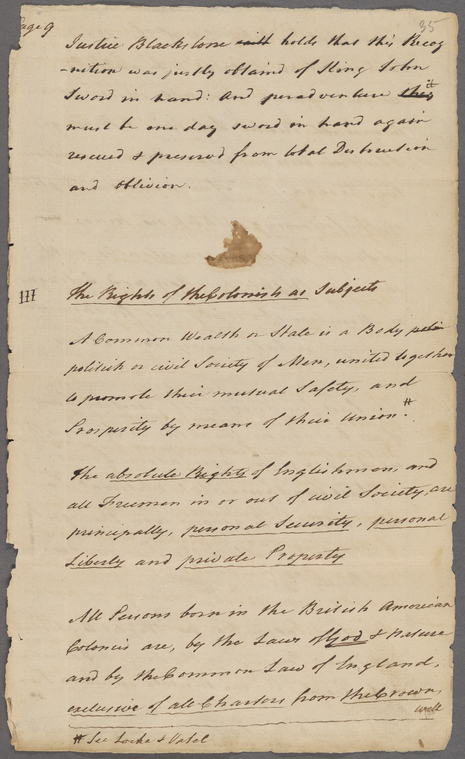 Page 9
35
Justice Blackstone saith holds that this Recog
-nition was justly obtaind of King John
Sword in hand: And peradventure this it
must be one day sword in hand again
rescued & preserved from total Destruction
and oblivion.
III
The Rights of the Colonists as Subjects
A Common Wealth or State is a Body politic
politick or civil Society of Men, united together
to promote their mutual Safety, and
Prosperity by means of their Union.#
The absolute Rights of Englishmen, and
all Freemen in or out of civil Society, are
principally, personal Security, personal
Liberty and private Property
All Persons born in the British American
Colonies are, by the Laws of God & Nature
and by the Common Law of England,
exclusive of all Charters from the Crown,
well
# See Locke & Vatel